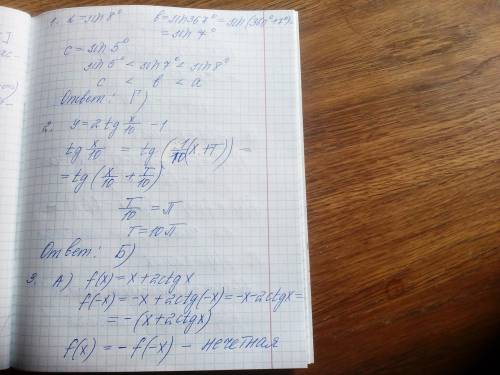 1. a = sin 8° b = sin 367° = sin(360°+7°) =
= sin 7°
c = sin 5°
sin 5° < sin 7° < sin 8°
c < b < a
Ответ: Г)
2. y = 2 tg x/10 - 1
tg x/10 = tg (1/10 (x+T)) =
= tg (x/10 + T/10)
T/10 = π
T = 10π
Ответ: Б)
3. А) f(x) = x + 2ctgx
f(-x) = -x + 2ctg(-x) = -x - 2ctgx =
= -(x + 2ctgx)
f(x) = -f(-x) - нечетная